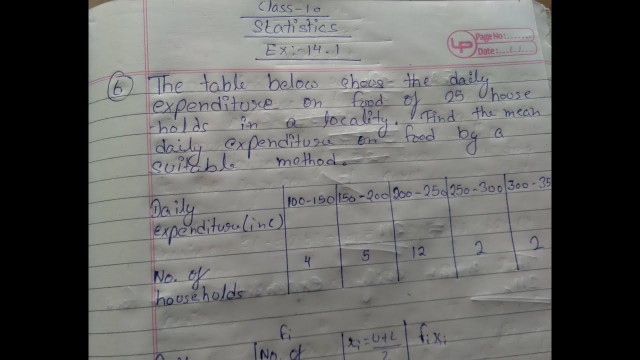 Class-10
Statistics
Ex:-14.1
LP Page No:
Date:
6. The table below shows the daily
expenditure on food of 25 house
holds in a locality. Find the mean
daily expenditure on food by a
suitable method.
Daily 100-150 150-200 200-250 250-300 300-35
expenditure (in
No. of 4 5 12 2 2
households
fi xi = fixi
No. of